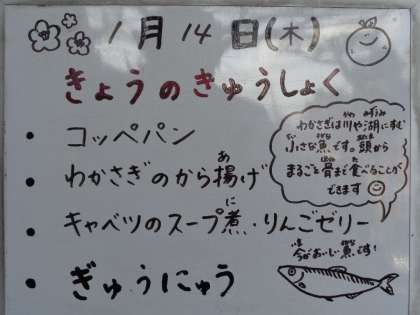 1月14日(木)
きょうのきゅうしょく
・コッペパン
・わかさぎのから揚げ
・キャベツのスープ煮・りんごゼリー
・ぎゅうにゅう
わかさぎは川や湖に住む
小さな魚です。頭から
まるごと骨まで食べることが
できます
今がおいしい魚です!